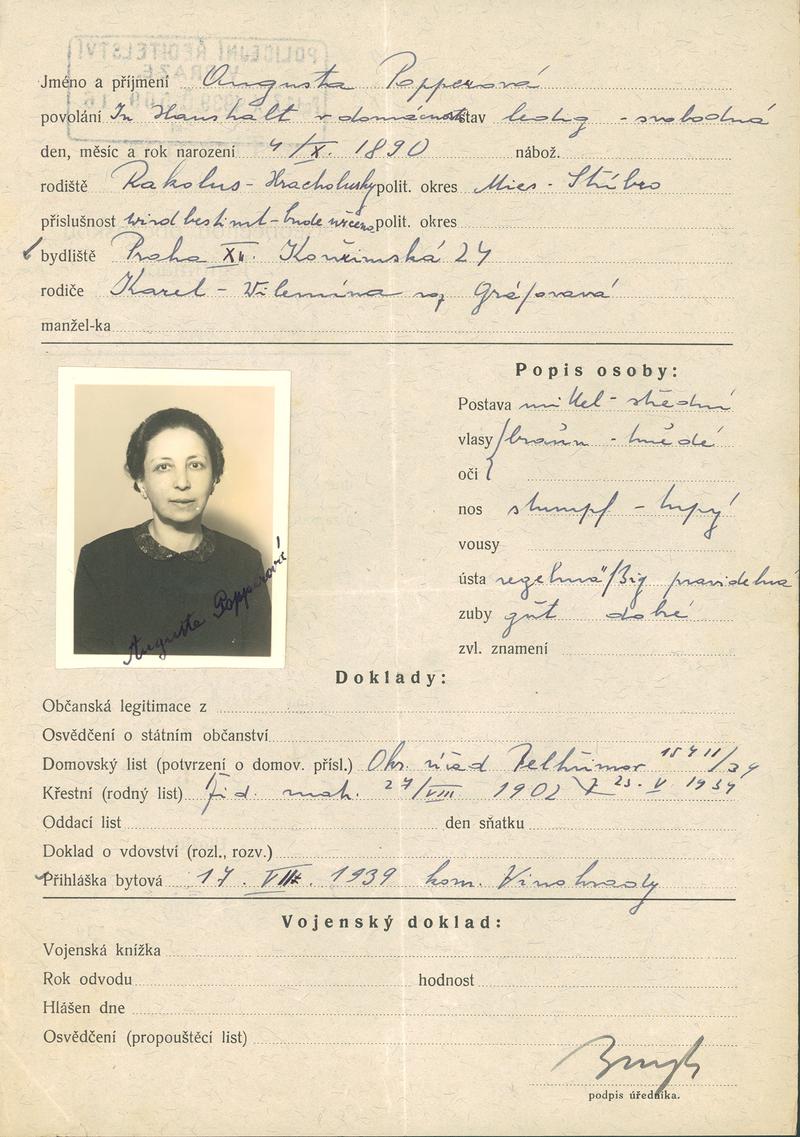 POLICEJNÍ ŘEDITELSTVÍ
V PRAZE
Jméno a příjmení Augusta Popperová
povolání In Haushalt v domácnosti stav ledig - svobodná
den, měsíc a rok narození 4/X. 1890 nábož.
rodiště Rakolus - Hracholusky polit. okres Mies - Stříbro
příslušnost wird bestimt - bude určena polit. okres
bydliště Praha XII. Kouřimská 24
rodiče Karel - Vilemína roz
manžel-ka
Popis osoby:
Postava mittel - střední
vlasy braun - hnědé
oči
nos stumpf - tupý
vousy
ústa regelmäßig pravidelná
zuby gut dobré
zvl. znamení
Augusta Popperová
Doklady:
Občanská legitimace z
Osvědčení o státním občanství
Domovský list (potvrzení o domov. přísl.) Okr. úřad Pelhřimov
Křestní (rodný list) žid. mat. 27/VIII 1902
Oddací list den sňatku
Doklad o vdovství (rozl., rozv.)
Přihláška bytová 17. 1939 kom. Vinohrady
Vojenský doklad:
Vojenská knížka
Rok odvodu hodnost
Hlášen dne
Osvědčení (propouštěcí list)
podpis úředníka.